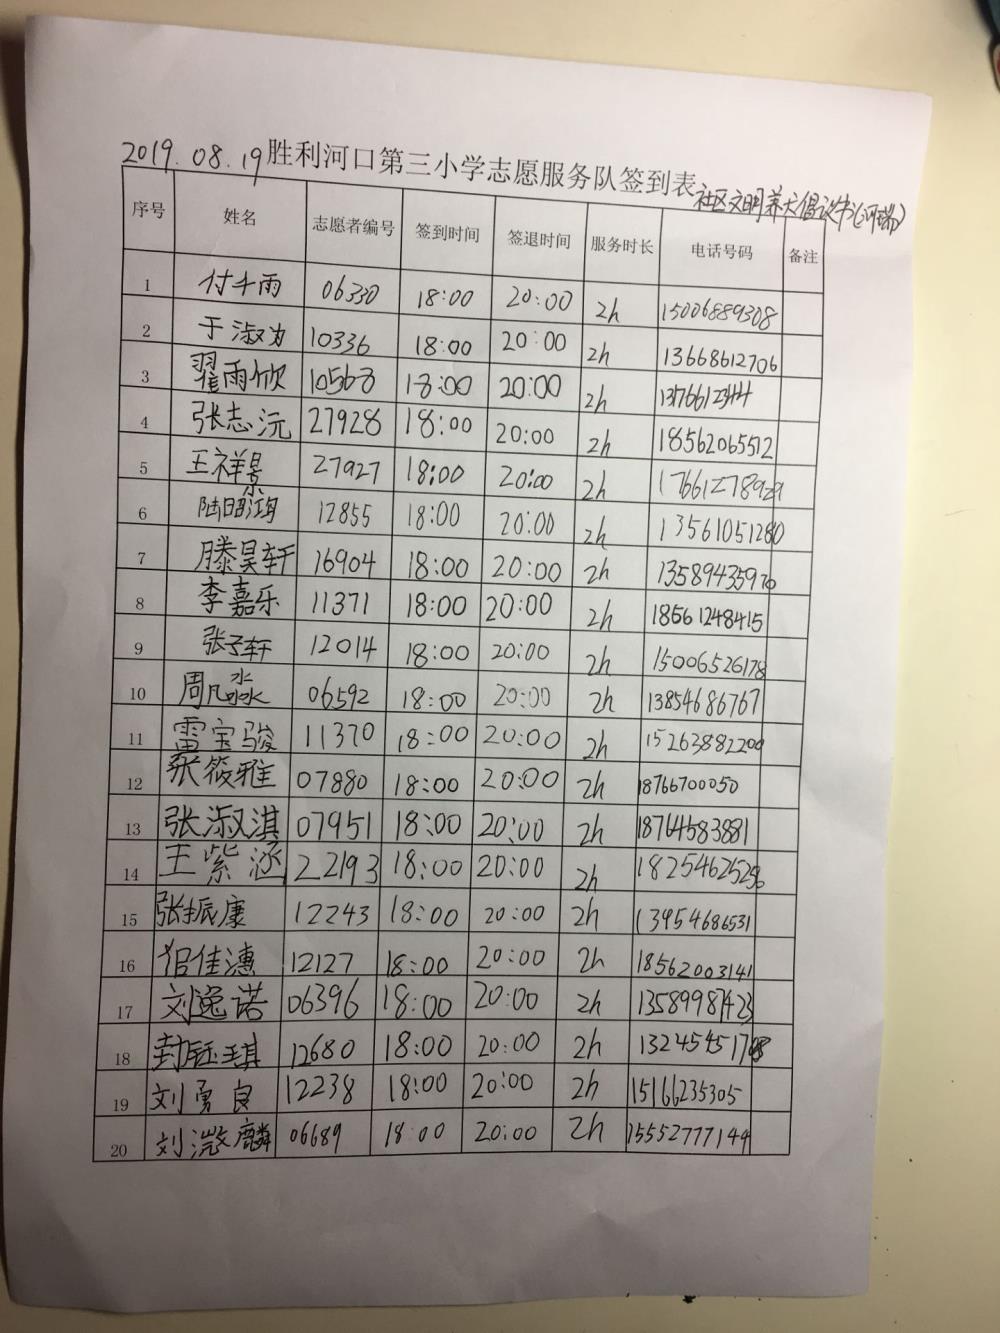 2019.08.19 胜利河口第三小学志愿服务队签到表 社区文明养犬倡议书
序号 姓名 志愿者编号 签到时间 签退时间 服务时长 电话号码 备注
1 付千雨 06330 18:00 20:00 2h 15006889308
2 于淑 10336 18:00 20:00 2h 13668612706
3 翟雨欣 10568 18:00 20:00 2h
4 张志沅 27928 18:00 20:00 2h 18562065512
5 王祥 27927 18:00 20:00 2h 17661278929
6 陆 12855 18:00 20:00 2h 13561051280
7 滕昊轩 16904 18:00 20:00 2h 13589435970
8 李嘉乐 11371 18:00 20:00 2h 18561248415
9 张子轩 12014 18:00 20:00 2h 15006526178
10 周凡淼 06592 18:00 20:00 2h 13854686767
11 雷宝骏 11370 18:00 20:00 2h 15263882200
12 张筱雅 07880 18:00 20:00 2h 18766700050
13 张淑淇 07951 18:00 20:00 2h 18764583881
14 王紫涵 22193 18:00 20:00 2h 18254625256
15 张振康 12243 18:00 20:00 2h 13954686531
16 佳 12127 18:00 20:00 2h 18562003141
17 刘逸诺 06396 18:00 20:00 2h 13589987423
18 封钰琪 12680 18:00 20:00 2h
19 刘勇良 12238 18:00 20:00 2h 15166235305
20 刘 麟 06689 18:00 20:00 2h 15552777144